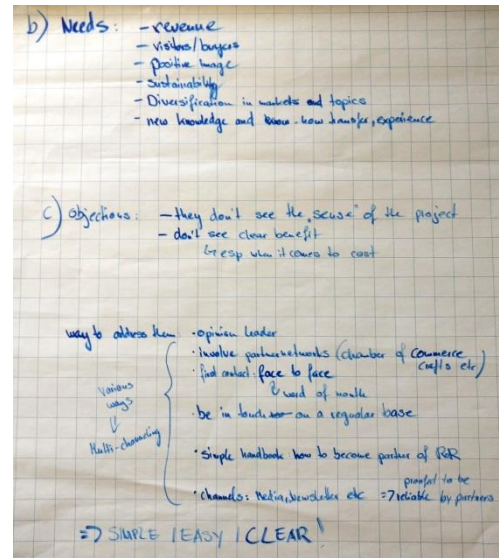 b) Needs: - revenue
- visitors/buyers
- positive image
- sustainability
- Diversification in markets and topics
- new knowledge and know-how transfer, experience
c) Objections: - they don't see the "sense" of the project
- don't see clear benefit
↳ esp when it comes to cost
way to address them · opinion leader
· involve partnernetworks (chamber of commerce
crafts etc)
· first contact: face to face
↳ word of mouth
· be in touch on a regular base
various
ways
⇓
Multi-channeling
· simple handbook how to become partner of
· channels: Media, Newsletter etc => reliable by partners
to be
=> SIMPLE / EASY / CLEAR!